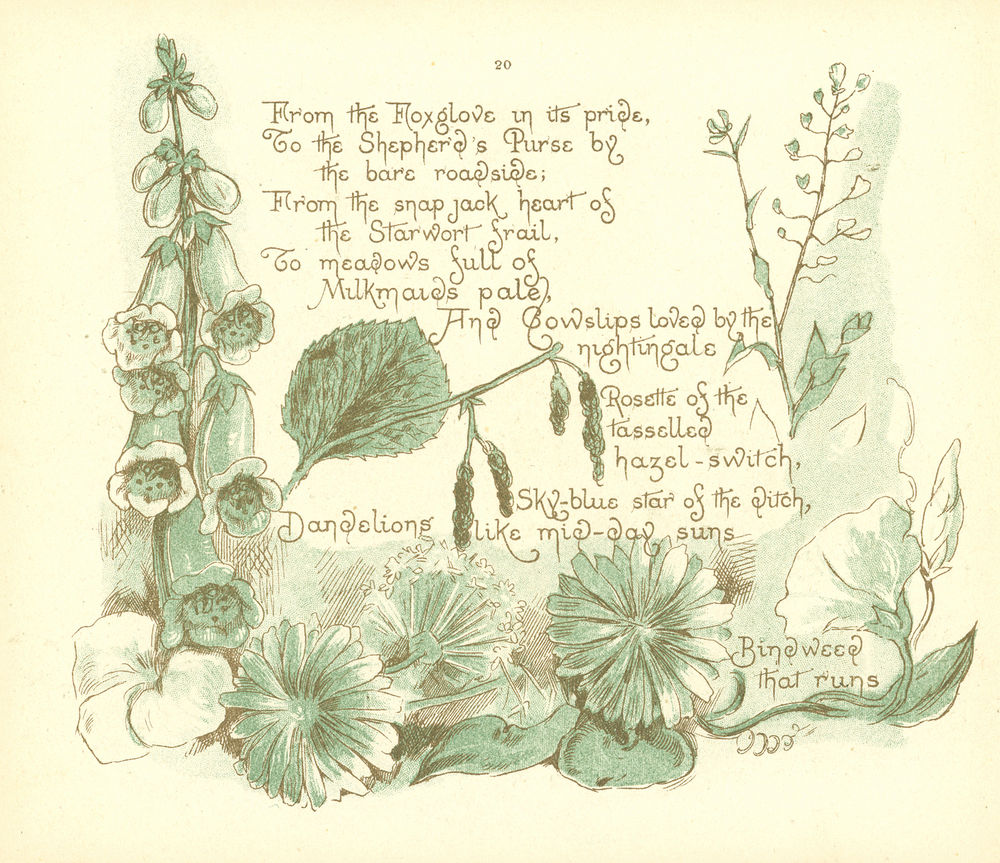 20
From the Foxglove in its pride,
To the Shepherd's Purse by
the bare roadside;
From the snap jack heart of
the Starwort frail,
To meadows full of
Milkmaids pale,
And Cowslips loved by the
nightingale
Rosette of the
tasselled
hazel-switch,
Sky-blue star of the ditch,
Dandelions like mid-day suns
Bindweed
that runs